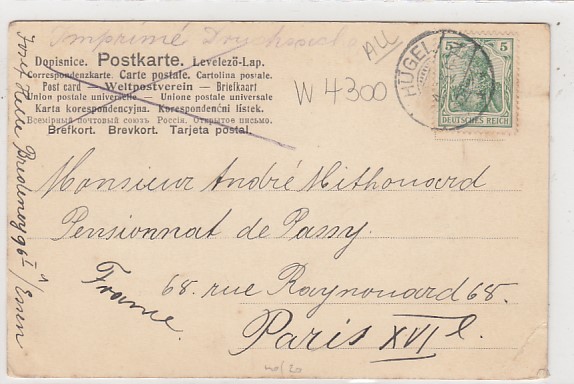 Imprimé Drucksache
ALL
Dopisnice. Postkarte. Levelező-Lap.
Correspondenzkarte. Carte postale. Cartolina postale.
Post card — Weltpostverein — Briefkaart
Union postale universelle — Unione postale universale
Karta korespondencyjna. Korespondenční listek.
Всемірный почтовый союзъ Россія. Открытое письмо.
Brefkort. Brevkort. Tarjeta postal.
W 4300
HÜGEL
5 5
DEUTSCHES REICH
Monsieur André Mithouard
Pensionnat de Passy.
68. rue Raynouard 68.
France.
Paris XVI e.
40/20
96 I/1 Essen